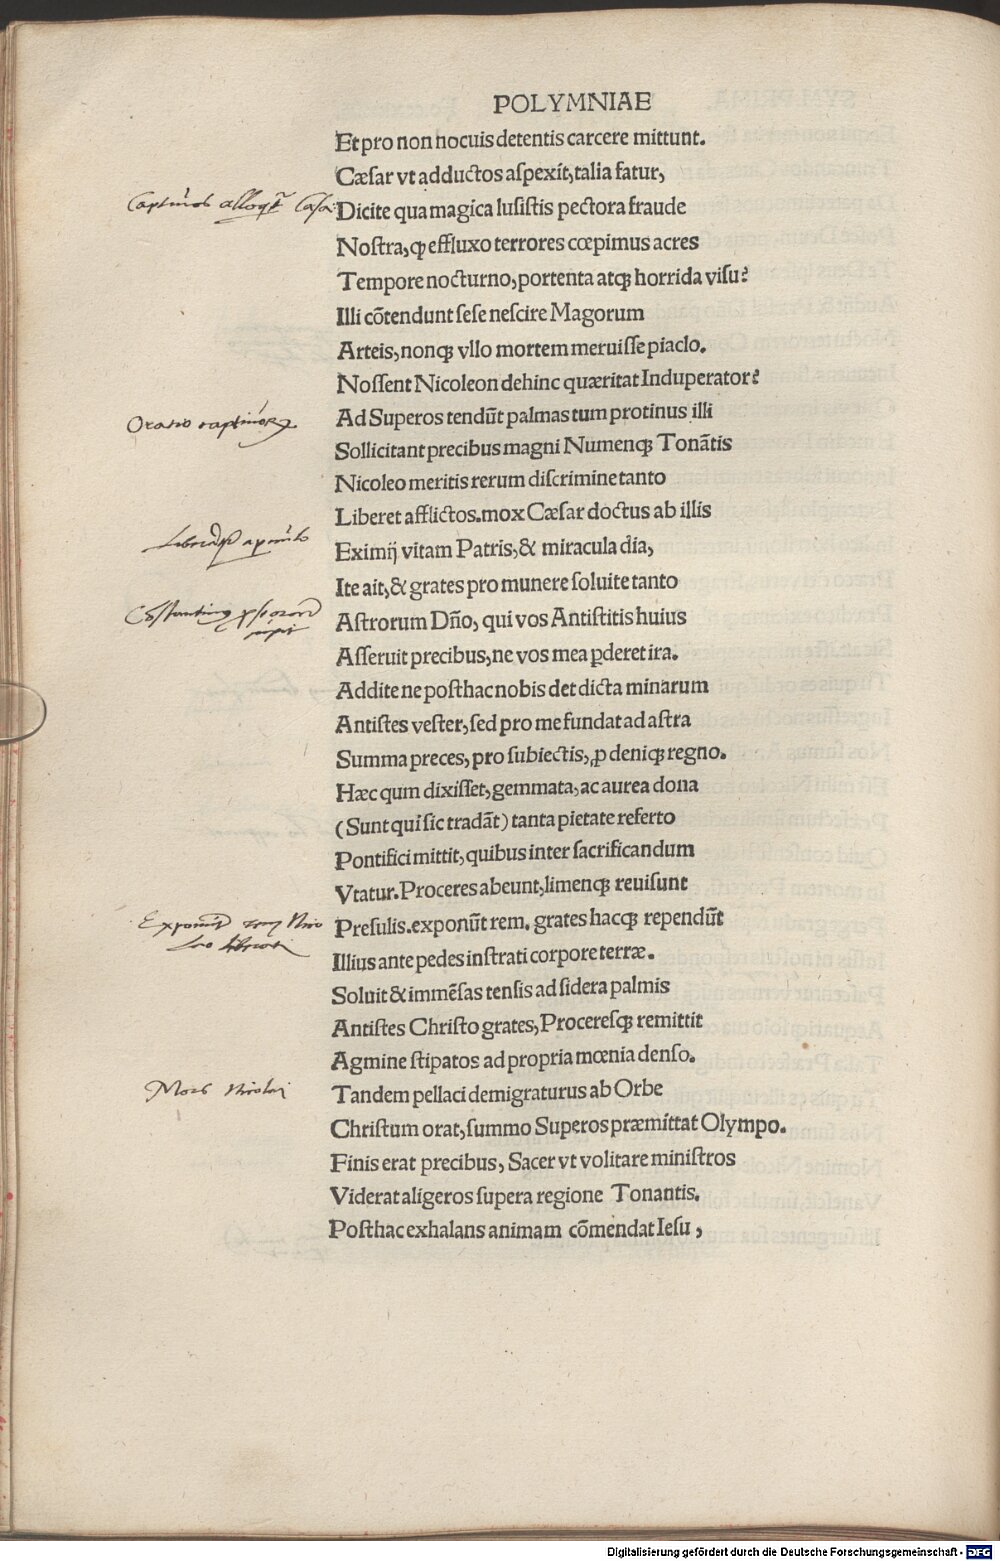 POLYMNIAE
Et pro non nocuis detentis carcere mittunt.
Cæsar vt adductos aſpexit, talia fatur,
Captiuos alloqr̃ Cæsar
Dicite qua magica luſiſtis pectora fraude
Noſtra, ꝙ effluxo terrores cœpimus acres
Tempore nocturno, portenta atqꝫ horrida viſu?
Illi cõtendunt ſeſe neſcire Magorum
Arteis, nonqꝫ vllo mortem meruiſſe piaclo.
Noſſent Nicoleon dehinc quæritat Induperator?
Oratio captiuoꝝ
Ad Superos tendũt palmas tum protinus illi
Sollicitant precibus magni Numenqꝫ Tonãtis
Nicoleo meritis rerum diſcrimine tanto
Liberet afflictos. mox Cæſar doctus ab illis
Eximij vitam Patris, & miracula dia,
Ite ait, & grates pro munere ſoluite tanto
Aſtrorum Dño, qui vos Antiſtitis huius
Aſſeruit precibus, ne vos mea ꝑderet ira.
Addite ne poſthac nobis det dicta minarum
Antiſtes veſter, ſed pro me fundat ad aſtra
Summa preces, pro ſubiectis, ꝓ deniqꝫ regno.
Hæc qum dixiſſet, gemmata, ac aurea dona
(Sunt qui ſic tradãt) tanta pietate referto
Pontifici mittit, quibus inter ſacrificandum
Vtatur. Proceres abeunt, limenqꝫ reuiſunt
Preſulis. exponũt rem. grates hacqꝫ rependũt
Illius ante pedes inſtrati corpore terræ.
Soluit & immẽſas tenſis ad ſidera palmis
Antiſtes Chriſto grates, Procereſqꝫ remittit
Agmine ſtipatos ad propria mœnia denſo.
Mors Nicolai
Tandem pellaci demigraturus ab Orbe
Chriſtum orat, ſummo Superos præmittat Olympo.
Finis erat precibus, Sacer vt volitare miniſtros
Viderat aligeros ſupera regione Tonantis.
Poſthac exhalans animam cõmendat Ieſu,
Digitalisierung gefördert durch die Deutsche Forschungsgemeinschaft - DFG